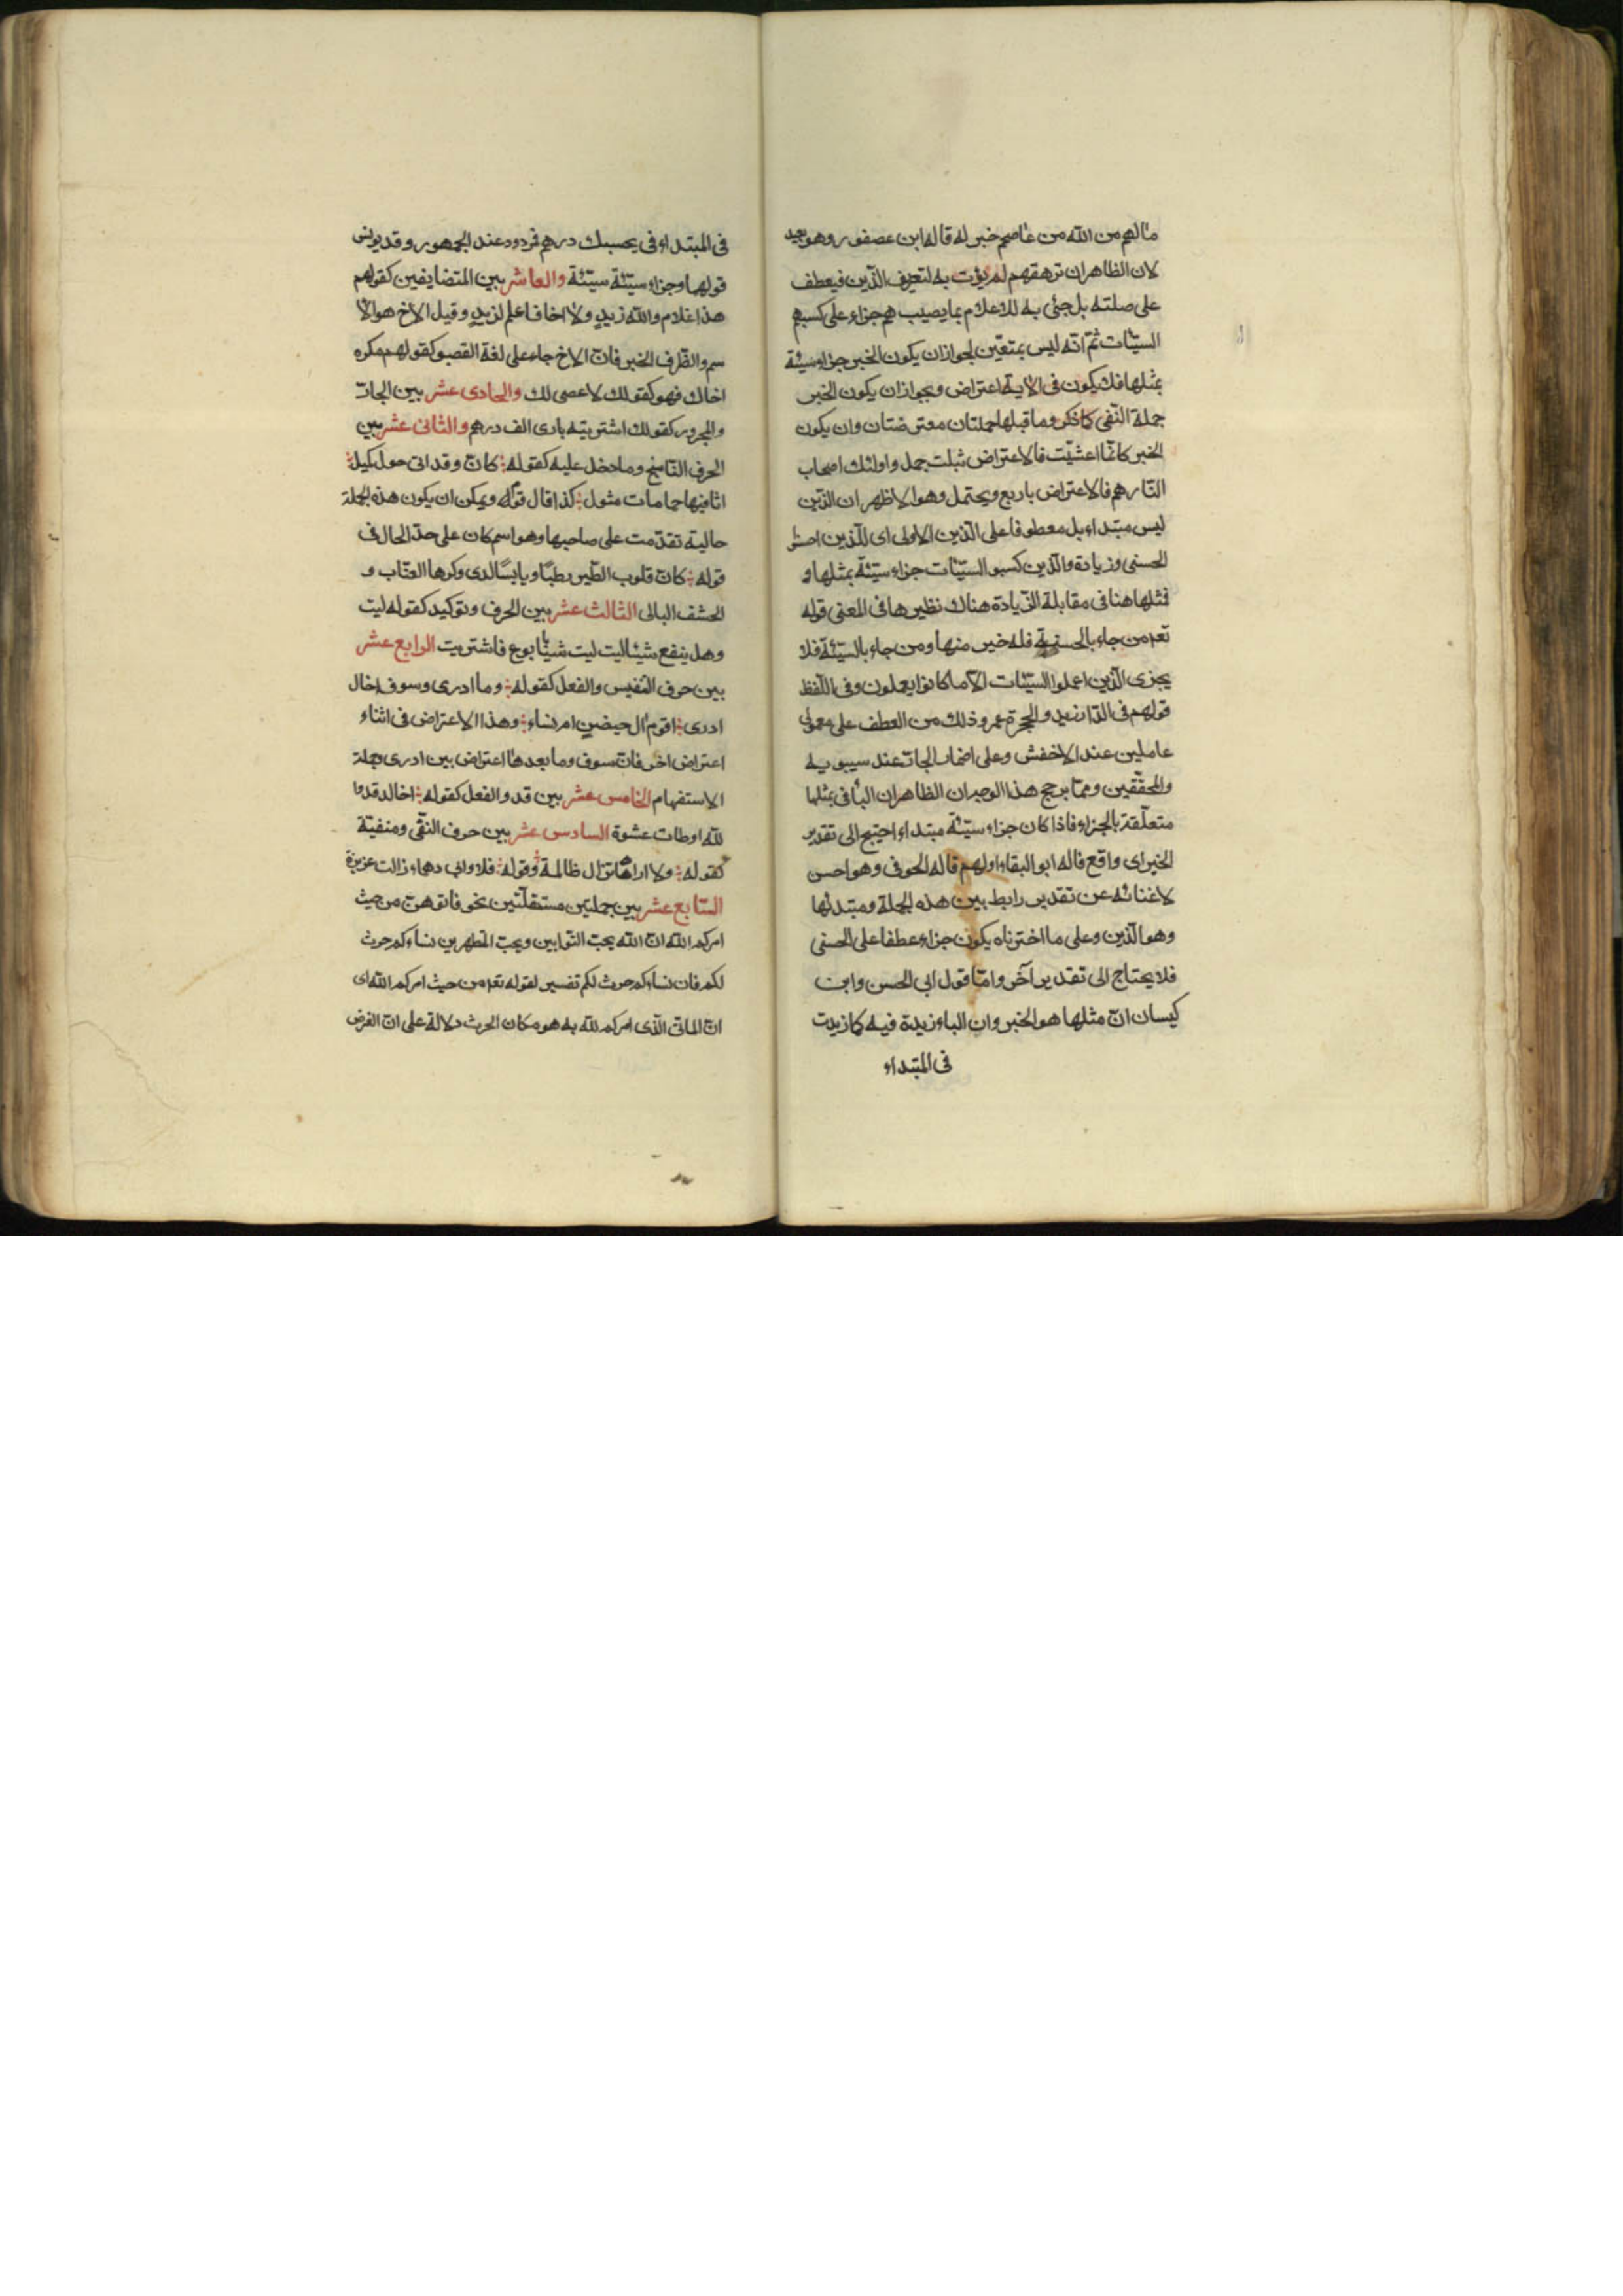 ما لهم من الله من عاصم خبر له قاله ابن عصفور وهو بعيد
لان الظاهر ان ترهقهم لم يؤت به لتعريف الذين فيعطف
على صلته بل جئ به للاعلام بما يصيبهم جزاء على كسبهم
السيّئات ثمّ انّه ليس بمتعيّن لجواز ان يكون الخبر جزاء سيئة
بمثلها فلا يكون فى الاية اعتراض ويجوز ان يكون الخبر
جملة النّفى كما ذكر وما قبلها جملتان معترضتان وان يكون
الخبر كانّما اغشيت فالاعتراض بثلث جمل واولئك اصحاب
النّار هم فالاعتراض باربع ويحتمل وهو الاظهر ان الذّين
ليس مبتداء بل معطوفا على الّذين الاولى اى للّذين احسنوا
الحسنى وزيادة والّذين كسبوا السيّئات جزاء سيّئة بمثلها و
فمثلها هنا فى مقابلة الزّيادة هناك نظيرها فى المعنى قوله
تعم من جاء بالحسنة فله خير منها ومن جاء بالسيّئة فلا
يجزى الّذين اعملوا السيّئات الّا ما كانوا يعملون وفى اللّفظ
قولهم فى الدّار زيد والحجرة عمرو وذلك من العطف على معمولى
عاملين عند الاخفش وعلى اضمار الجارّ عند سيبويه
والمحقّقين وممّا يرجح هذا الوجه ان الظاهر ان الباء فى بمثلها
متعلّقة بالجزاء فاذا كان جزاء سيّئة مبتداء احتيج الى تقدير
الخبر اى واقع قاله ابو البقاء او لهم قاله الحوفى وهو احسن
لاغنائه عن تقدير رابط بين هذه الجملة ومبتدئها
وهو الّذين وعلى ما اخترناه يكون جزاء عطفا على الحسنى
فلا يحتاج الى تقدير آخر وامّا قول ابى الحسن وابن
كيسان انّ مثلها هو الخبر وان الباء زيدة فيه كما زيدت
فى المبتداء
فى المبتداء فى بحسبك درهم فردود عند الجمهور وقد يونس
قولهما وجزاء سيّئة سيّئة والعاشر بين المتضايفين كقولهم
هذا غلام والله زيدٍ ولا اخا فاعلم لزيدٍ وقيل الاخ هو الا
سم والظّرف الخبر فانّ الاخ جاء على لغة القصر كقولهم مكره
اخاك فهو كقولك لا عصى لك والحادى عشر بين الجارّ
والمجرور كقولك اشتريته بارى الف درهم والثانى عشر بين
الحرف النّاسخ وما دخل عليه كقوله كانّ وقد اتى حول كميل
اثافيها حمامات مثول كذا قال قوله ويمكن ان يكون هذه الجملة
حالية تقدّمت على صاحبها وهو اسم كان على حدّ الحال فى
قوله كانّ قلوب الطّير رطبًا ويابسًا لدى وكرها العنّاب و
الحشف البالى الثالث عشر بين الحرف وتوكيد كقوله ليت
وهل ينفع شيئا ليت ليت شبابا بوع فاشتريت الرابع عشر
بين حرف التّنفيس والفعل كقوله وما ادرى وسوف اخال
ادرى اقوم ال حيضين ام نساء وهذا الاعتراض فى اثناء
اعتراض اخر فانّ سوف وما بعدها اعتراض بين ادرى وجملة
الاستفهام الخامس عشر بين قد والفعل كقوله اخالد قد وا
لله اوطات عشوة السادس عشر بين حرف النّفى ومنفيّه
كقوله ولا اراها تزال ظالمة وقوله فلا وابى دهماء زالت عزيزة
السّابع عشر بين جملتين مستقلّتين نحو فاتوهنّ من حيث
امركم الله انّ الله يحبّ التوّابين ويحبّ المتطهرين نساءكم حرث
لكم فان نساءكم حرث لكم تفسير لقوله تعم من حيث امركم الله اى
انّ الماتى الّذى امركم لله به هو مكان الحرث دلالة على انّ الغرض